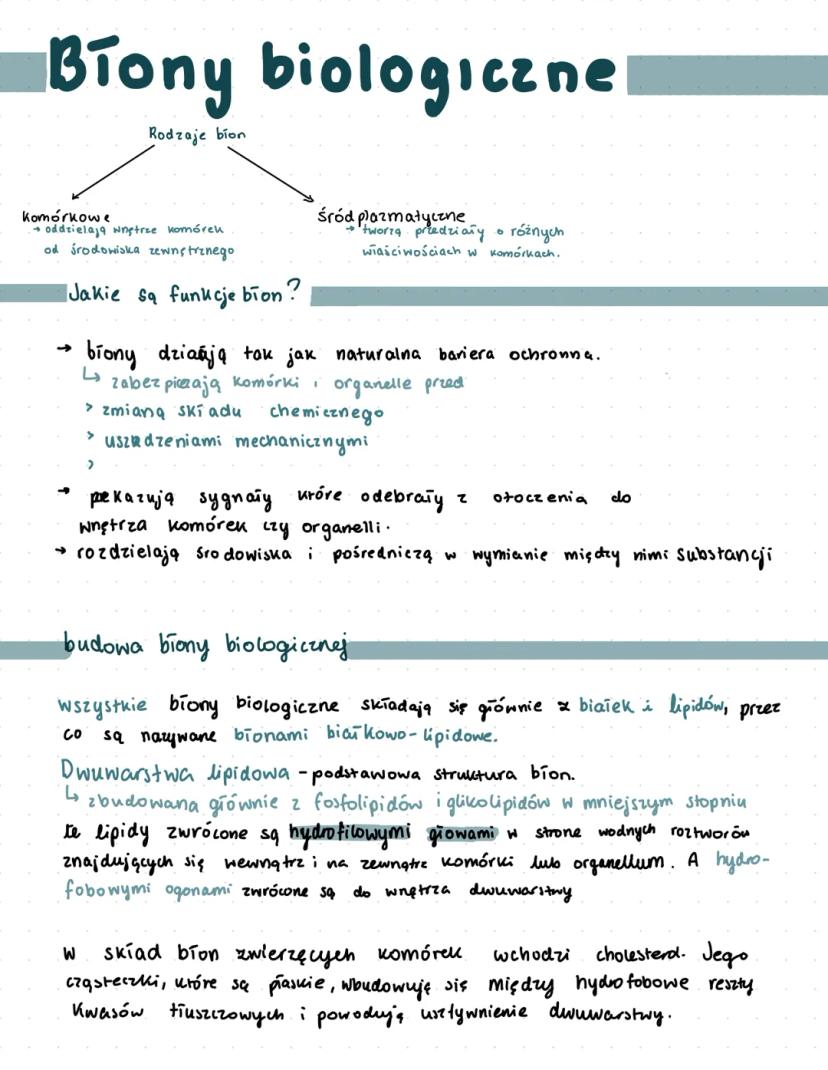 Błony biologiczne
Rodzaje błon
komórkowe
→ oddzielają wnętrze komórek
od środowiska zewnętrznego
śródplazmatyczne
→ tworzą przedziały o różnych
właściwościach w komórkach.
Jakie są funkcje błon?
→ błony działają tak jak naturalna bariera ochronna.
↳ zabezpieczają komórki i organelle przed
> zmianą składu chemicznego
> uszkodzeniami mechanicznymi
>
→ pekazują sygnały które odebrały z otoczenia do
wnętrza komórek czy organelli.
→ rozdzielają środowiska i pośredniczą w wymianie między nimi substancji
budowa błony biologicznej
wszystkie błony biologiczne składają się głównie z białek i lipidów, przez
co są nazywane błonami białkowo-lipidowe.
Dwuwarstwa lipidowa - podstawowa struktura błon.
↳ zbudowana głównie z fosfolipidów i glikolipidów w mniejszym stopniu
te lipidy zwrócone są hydrofilowymi głowami w strone wodnych roztworów
znajdujących się wewnątrz i na zewnątrz komórki lub organellum. A hydro-
fobowymi ogonami zwrócone są do wnętrza dwuwarstwy
W skład błon zwierzęcych komórek wchodzi cholesterol. Jego
cząsteczki, które są płaskie, wbudowuję się między hydrofobowe reszty
kwasów tłuszczowych i powodują usztywnienie dwuwarstwy.